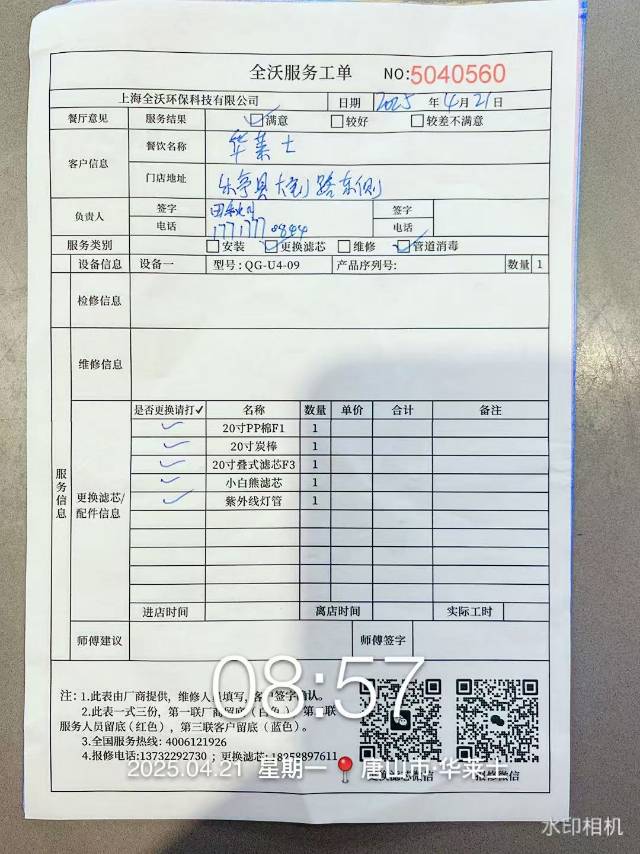 全沃服务工单 NO:5040560
上海全沃环保科技有限公司 日期 2025 年 4月 21日
餐厅意见 服务结果 满意 较好 较差不满意
客户信息 餐饮名称 华莱士
门店地址 路东侧
负责人 签字 签字
电话 17717770844 电话
服务类别 安装 更换滤芯 维修 管道消毒
设备信息 设备一 型号: QG-U4-09 产品序列号: 数量 1
检修信息
维修信息
服务信息
更换滤芯/配件信息
是否更换请打✓ 名称 数量 单价 合计 备注
✓ 20寸PP棉F1 1
✓ 20寸炭棒 1
✓ 20寸叠式滤芯F3 1
✓ 小白熊滤芯 1
✓ 紫外线灯管 1
进店时间 离店时间 实际工时
师傅建议 师傅签字
注: 1.此表由厂商提供, 维修人员填写, 客户签字确认。
2.此表一式三份, 第一联厂商留底(白色), 第二联
服务人员留底(红色), 第三联客户留底(蓝色)。
3.全国服务热线: 4006121926
4.报修电话:13732292730 ; 更换滤芯:18258897611
更换滤芯微信 报修微信
08:57
2025.04.21 星期一 唐山市·华莱士
水印相机